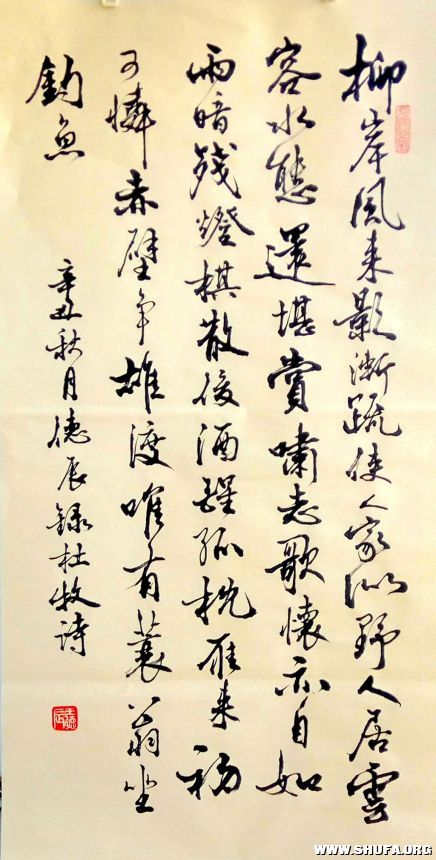 柳岸風来影漸疏使人家似野人居雲
容水態還堪賞嘯志歌懷亦自如
雨暗殘燈棋散後酒醒孤枕雁来初
可憐赤壁争雄渡唯有蓑翁坐
釣魚
辛丑秋月德辰録杜牧詩
WWW.SHUFA.ORG